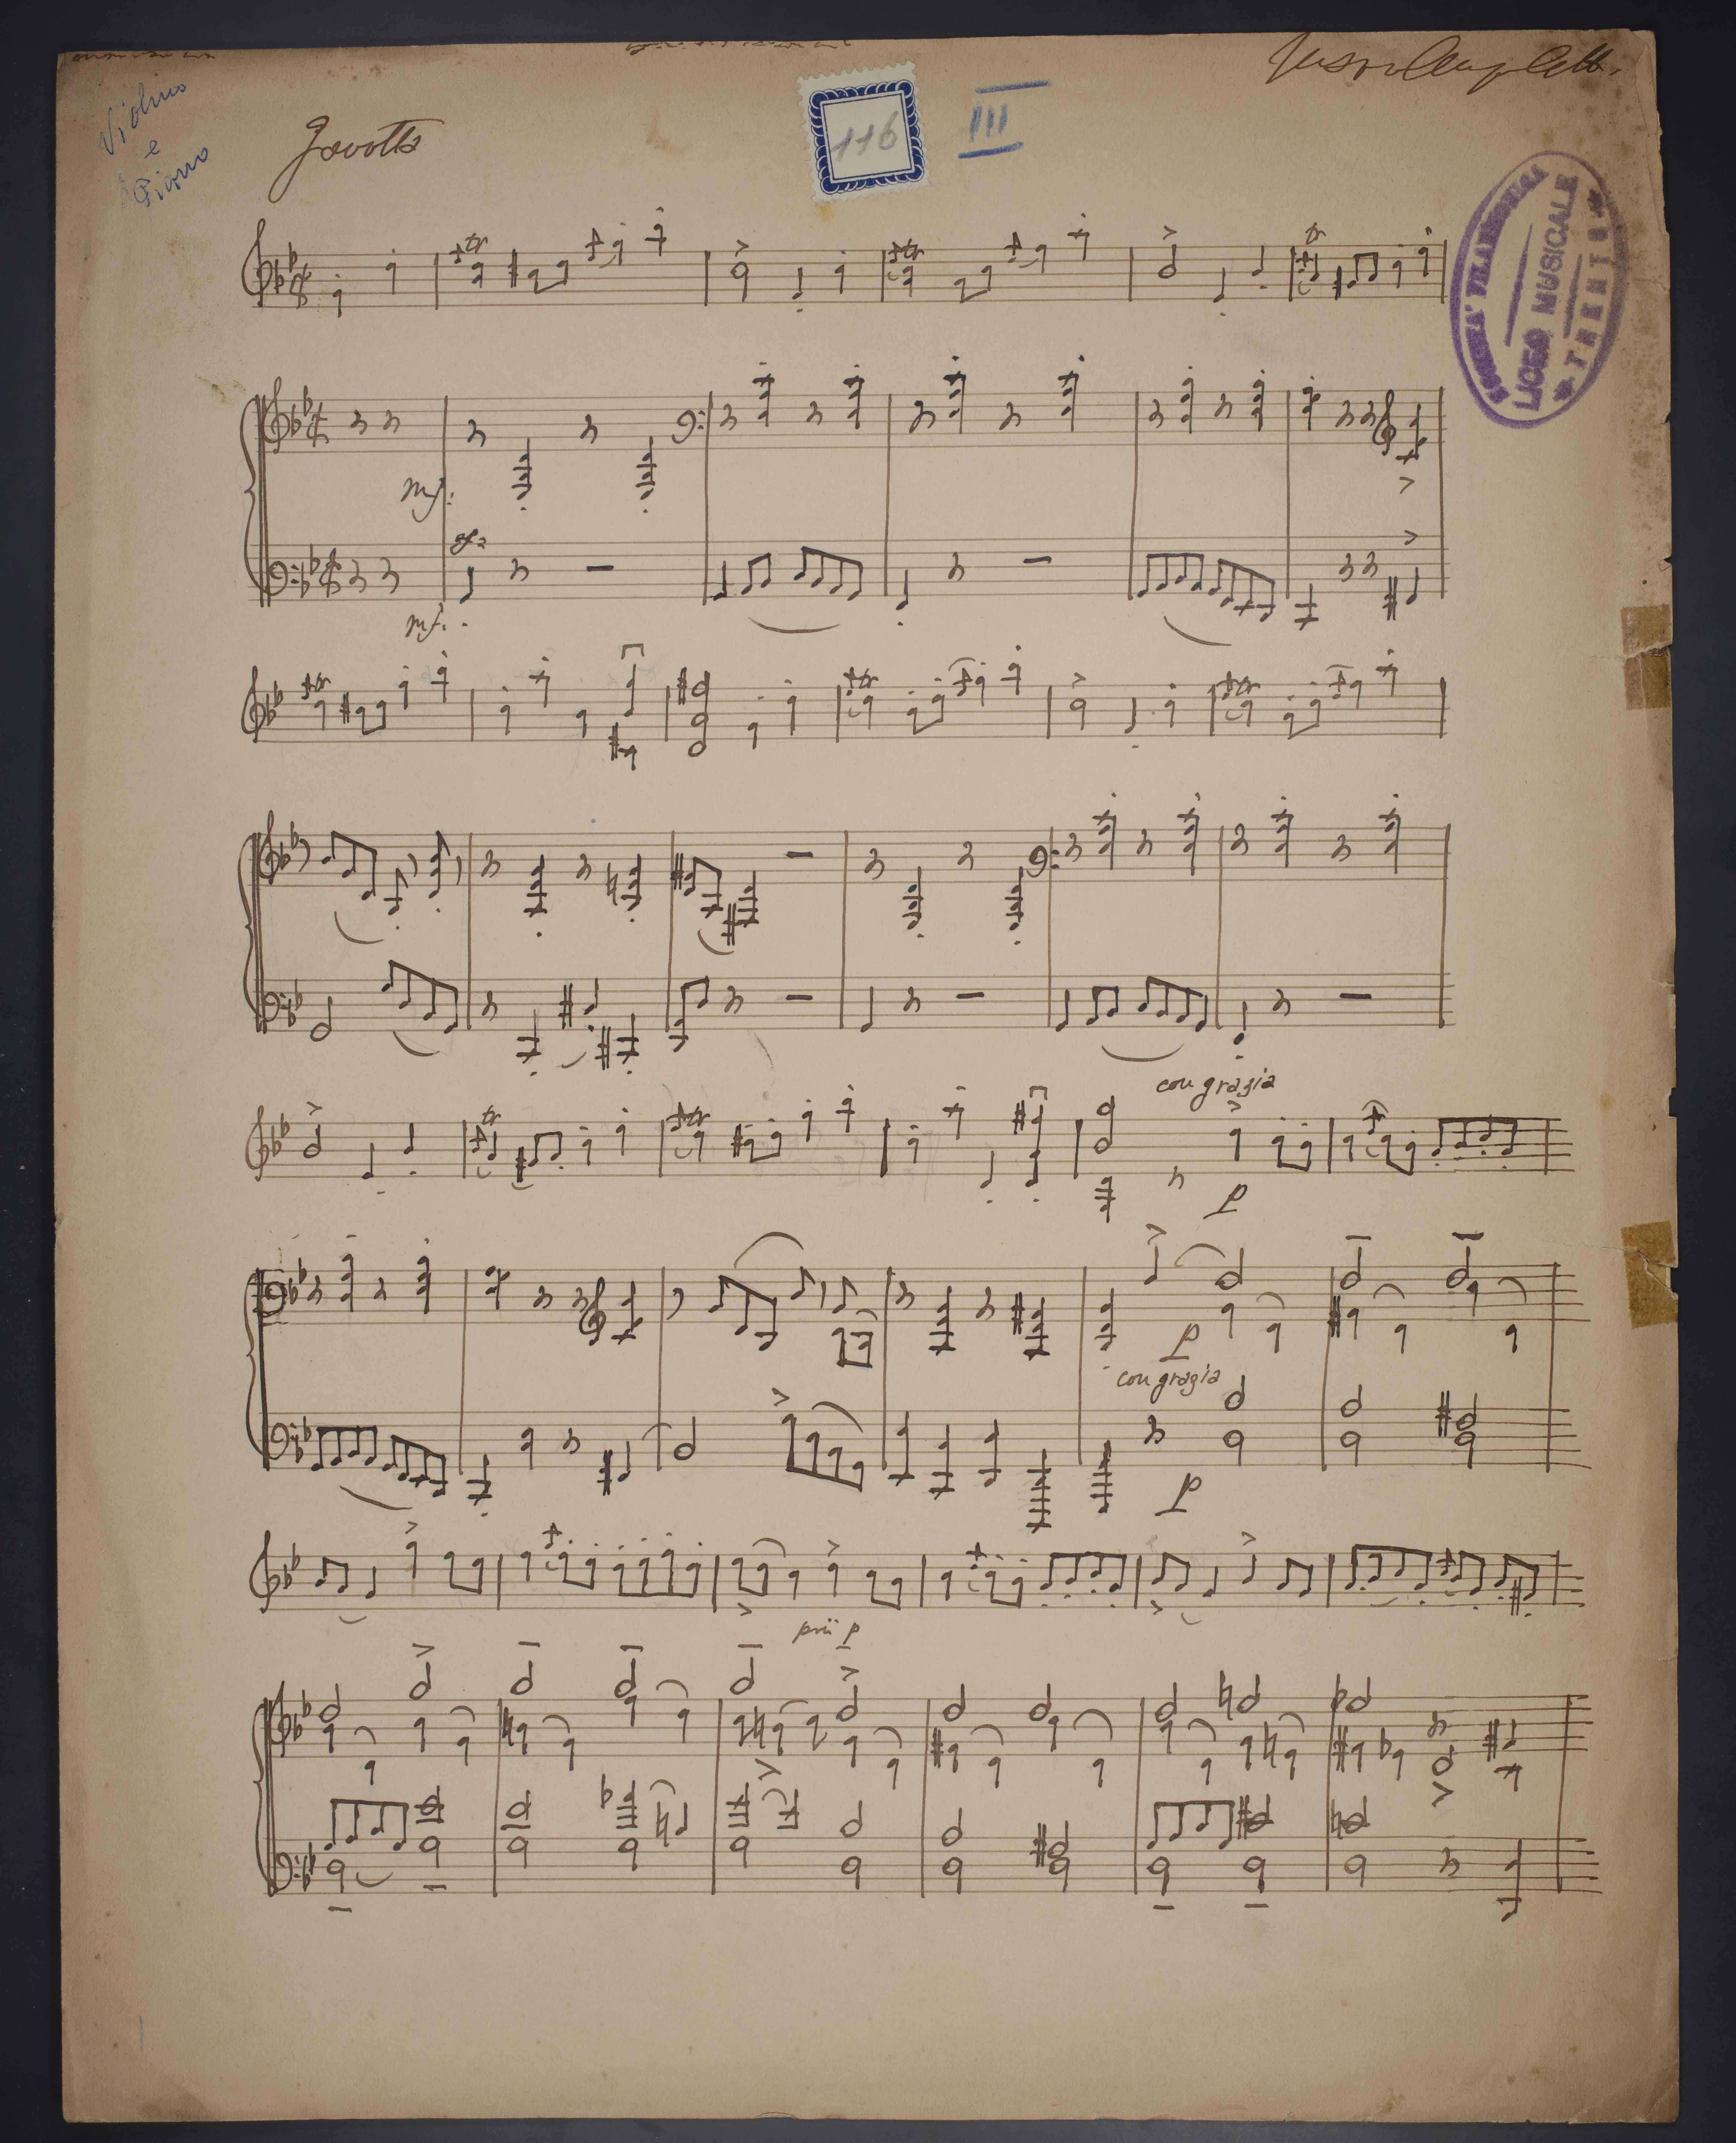 Violino
e
Piano
Gavotta
116
III
SOCIETA' FILARMONICA
LICEO MUSICALE
TRENTO
tr
tr
tr
mf.
mf.
tr
tr
tr
con grazia
tr
tr
p
p
con grazia
p
più p